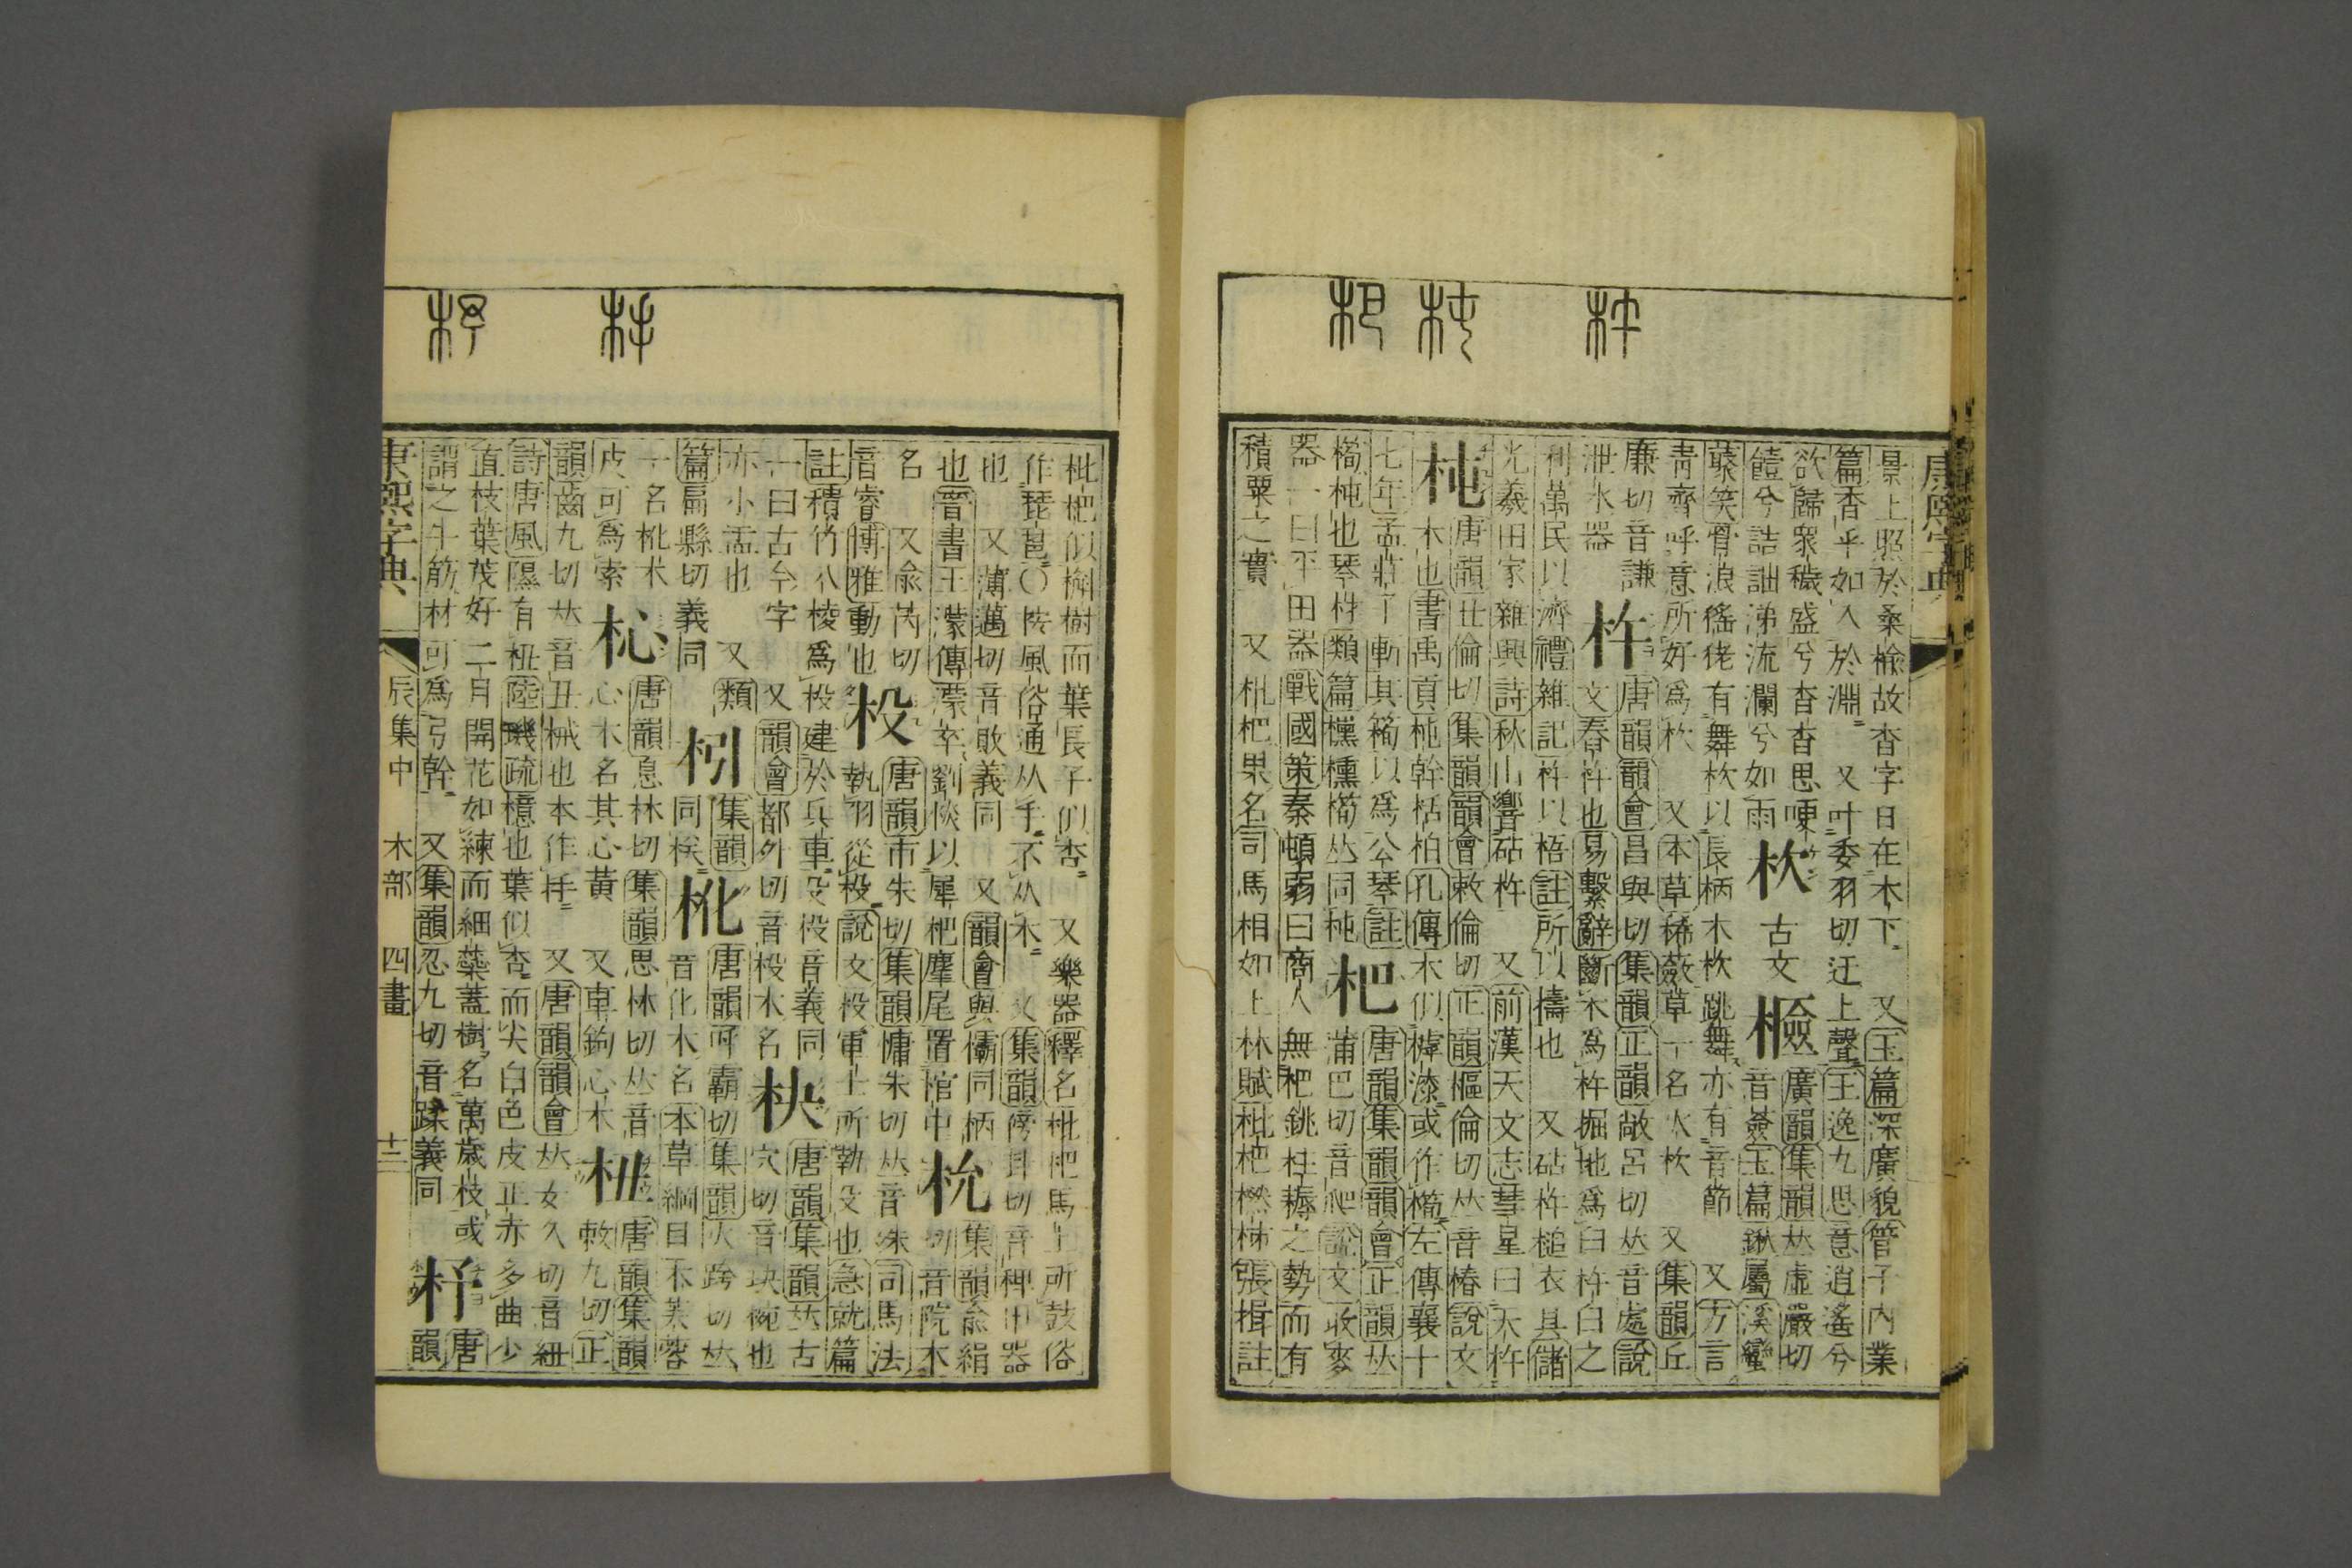 景上照於桑榆故杳字日在木下 又玉篇深廣貌管子內業
篇杳乎如入於淵 又叶委羽切迂上聲王逸九思意逍遙兮
欲歸衆穢盛兮杳杳思哽
饐兮詰詘涕流瀾兮如雨
杴 古文 㯠 廣韻集韻𠀤虛嚴切
音薟玉篇鍬屬溪蠻
藂笑滑浪傜佬有舞杴以長柄木杴跳舞亦有音節 又方言
靑齊呼意所好爲杴 又本草豨薟草一名火杴 又集韻丘
廉切音謙
泄水器
杵 唐韻韻會昌與切集韻正韻敞呂切𠀤音處說
文舂杵也易繫辭斷木爲杵掘地爲臼杵臼之
利萬民以濟禮雜記杵以梧註所以擣也 又砧杵槌衣具儲
光羲田家雜興詩秋山響砧杵 又前漢天文志彗星曰天杵
杶 唐韻丑倫切集韻韻會敕倫切正韻樞倫切𠀤音椿說文
木也書禹貢杶幹栝柏孔傳木似樗漆或作櫄左傳襄十
七年孟莊子斬其橁以爲公琴註
橁杶也琴材類篇櫄橁𠀤同杶
杷 唐韻集韻韻會正韻𠀤
蒲巴切音爬說文收麥
器一曰平田器戰國策秦頓弱曰商人無杷銚柱耨之勢而有
積粟之實 又枇杷果名司馬相如上林賦枇杷橪柿張揖註
枇杷似槲樹而葉長子似杏 又樂器釋名枇杷馬上所鼓俗
作琵琶○按風俗通从手不从木 又集韻傍卦切音稗田器
也 又薄邁切音敗義同 又韻會與欛同柄
也晉書王濛傳濛卒劉惔以犀杷麈尾置棺中
杬 集韻兪絹
切音院木
名 又兪芮切
音睿博雅動也
杸 唐韻市朱切集韻慵朱切𠀤音殊司馬法
執羽從杸說文杸軍士所執殳也急就篇
註積竹八棱爲杸建於兵車殳杸音義同
一曰古殳字 又韻會都外切音祋木名
柍 唐韻集韻𠀤古
穴切音玦椀也
亦小盂也 又類
篇扃縣切義同
杊 集韻
同梐
杹 唐韻呼霸切集韻火跨切𠀤
音化木名本草綱目木芙蓉
一名杹木
皮可爲索
杺 唐韻息林切集韻思林切𠀤音
心木名其心黃 又車鉤心木
杻 唐韻集韻
敕九切正
韻齒九切𠀤音丑械也本作杽 又唐韻韻會𠀤女久切音紐
詩唐風隰有杻陸璣疏檍也葉似杏而尖白色皮正赤多曲少
直枝葉茂好二月開花如練而細蘂蓋樹名萬歲枝或
謂之牛筋材可爲弓幹 又集韻忍九切音蹂義同
杼 唐
韻
康熙字典 辰集中 木部 四畫 十二